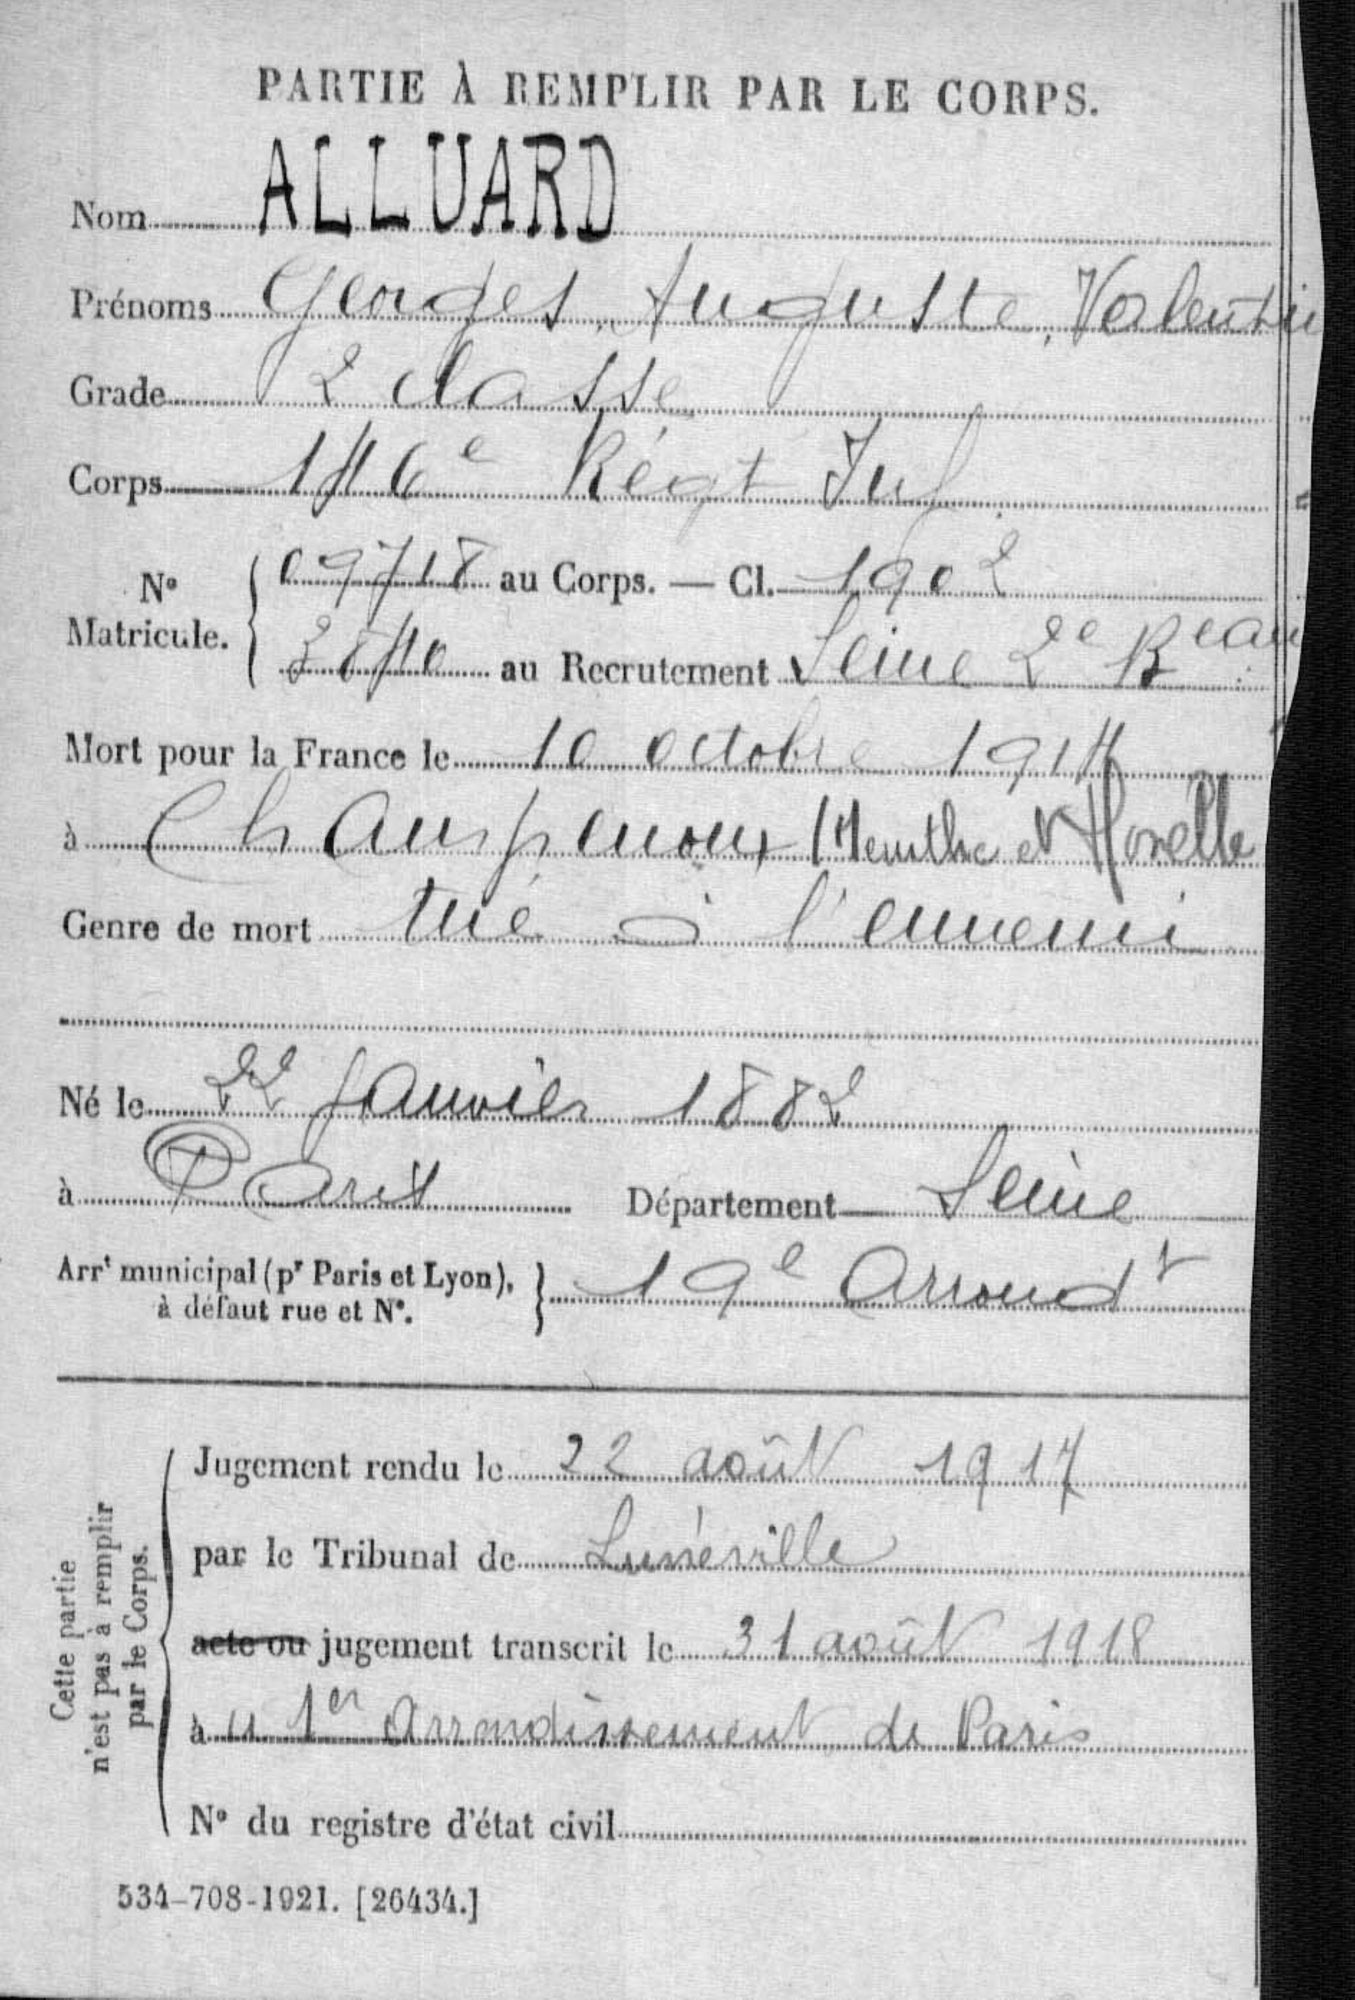 PARTIE À REMPLIR PAR LE CORPS.
Nom ALLUARD
Prénoms Georges, Auguste, Valentin
Grade 2 classe
Corps 146e Régt Inf
No Matricule. 09718 au Corps. — Cl. 1902
3840 au Recrutement Seine 2e Beau
Mort pour la France le 10 octobre 1914
à Champenoux (Meurthe et Moselle
Genre de mort tué à l'ennemi
Né le 22 Janvier 1882
à Paris Département Seine
Arrt municipal (pr Paris et Lyon), à défaut rue et No. 19e Arrondt
Cette partie n'est pas à remplir par le Corps.
Jugement rendu le 22 août 1917
par le Tribunal de Lunéville
acte ou jugement transcrit le 31 août 1918
à u 1er Arrondissement de Paris
No du registre d'état civil
534-708-1921. [26434.]